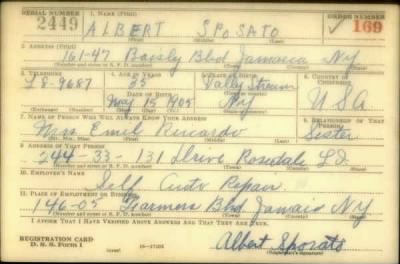 SERIAL NUMBER 1. NAME (Print) ORDER NUMBER
2449 ALBERT SPOSATO 169
(First) (Middle) (Last)
2. ADDRESS (Print)
161-47 Baisly Blvd Jamaica NY
(Number and street or R. F. D. number) (Town) (County) (State)
3. TELEPHONE 4. AGE IN YEARS 5. PLACE OF BIRTH 6. COUNTRY OF CITIZENSHIP
L8-9687 35 Vally Stream
DATE OF BIRTH (Town or county)
May 15 1905 Ny U S A
(Exchange) (Number) (Mo.) (Day) (Yr.) (State or country)
7. NAME OF PERSON WHO WILL ALWAYS KNOW YOUR ADDRESS 8. RELATIONSHIP OF THAT PERSON
Mrs. Emil Ricardo Sister
(Mr., Mrs., Miss) (First) (Middle) (Last)
9. ADDRESS OF THAT PERSON
244-33-131 Drive Rosedale L.I.
(Number and street or R. F. D. number) (Town) (County) (State)
10. EMPLOYER'S NAME
Self Auto Repair
11. PLACE OF EMPLOYMENT OR BUSINESS
146-05 Farmers Blvd Jamaica NY
(Number and street or R. F. D. number) (Town) (County) (State)
I AFFIRM THAT I HAVE VERIFIED ABOVE ANSWERS AND THAT THEY ARE TRUE.
REGISTRATION CARD
D. S. S. Form 1 Albert Sposato
(Registrant's signature)